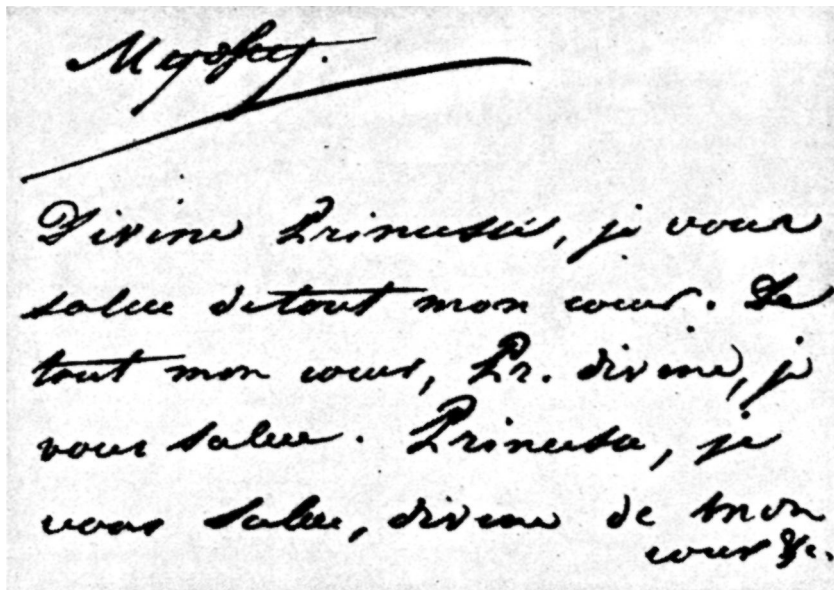 Divine Princesse, je vous
salue de tout mon cœur. De
tout mon cœur, Pr. divine, je
vous salue. Princesse, je
vous salue, divine de mon
cœur &c.